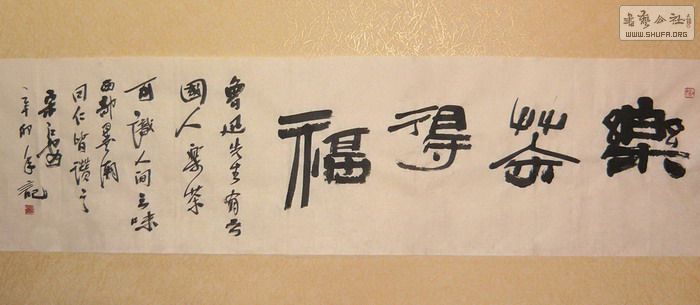 樂茶得福
魯迅先生有云
國人樂茶
可識人間三味
西部墨閣
同仁皆讚之
辛卯年記
書艺公社
WWW.SHUFA.ORG